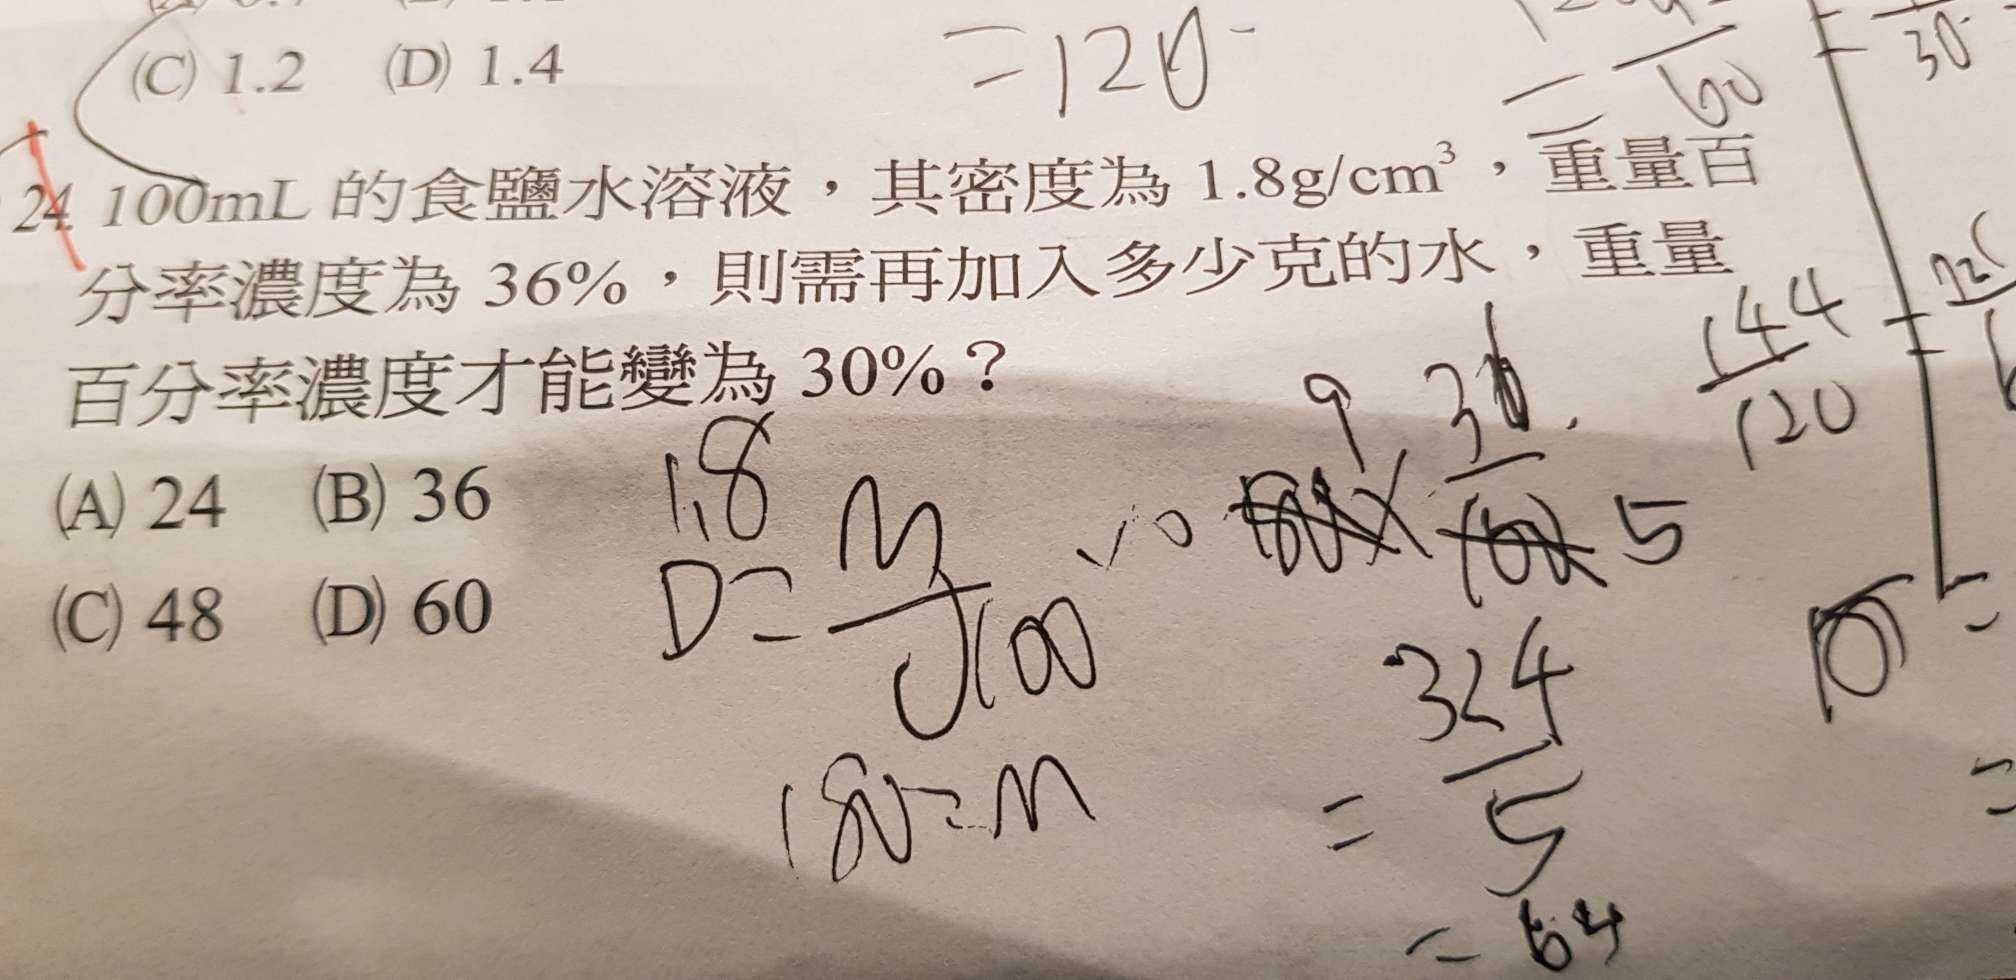 (C) 1.2 (D) 1.4
=120
60
30
24. 100mL 的食鹽水溶液，其密度為 1.8g/cm³，重量百
分率濃度為 36%，則需再加入多少克的水，重量
百分率濃度才能變為 30%？
(A) 24 (B) 36
(C) 48 (D) 60
1.8
D = M
100
180 = M
9
36
5
324
=
5
= 64
144
120